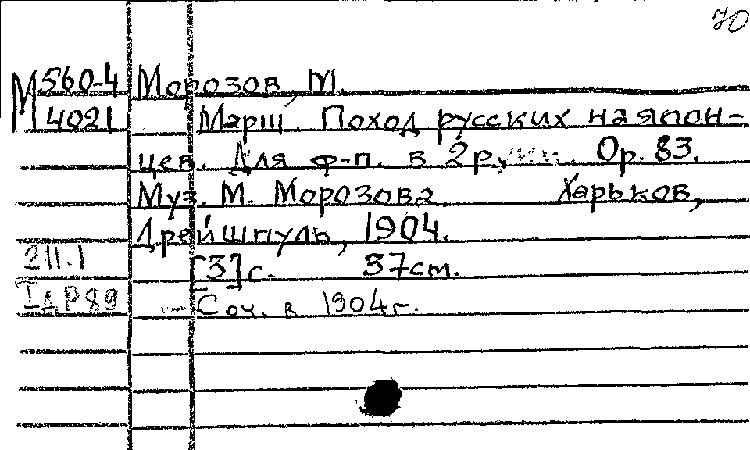 70
М 560-4 Морозов, М.
4021 Марш. Поход русских на япон-
цев. Для ф-п. в 2 р. Ор. 83.
Муз. М. Морозова. Харьков,
Дрейшпуль, 1904.
211.1 [3] с. 37 см.
Соч. в 1904 г.